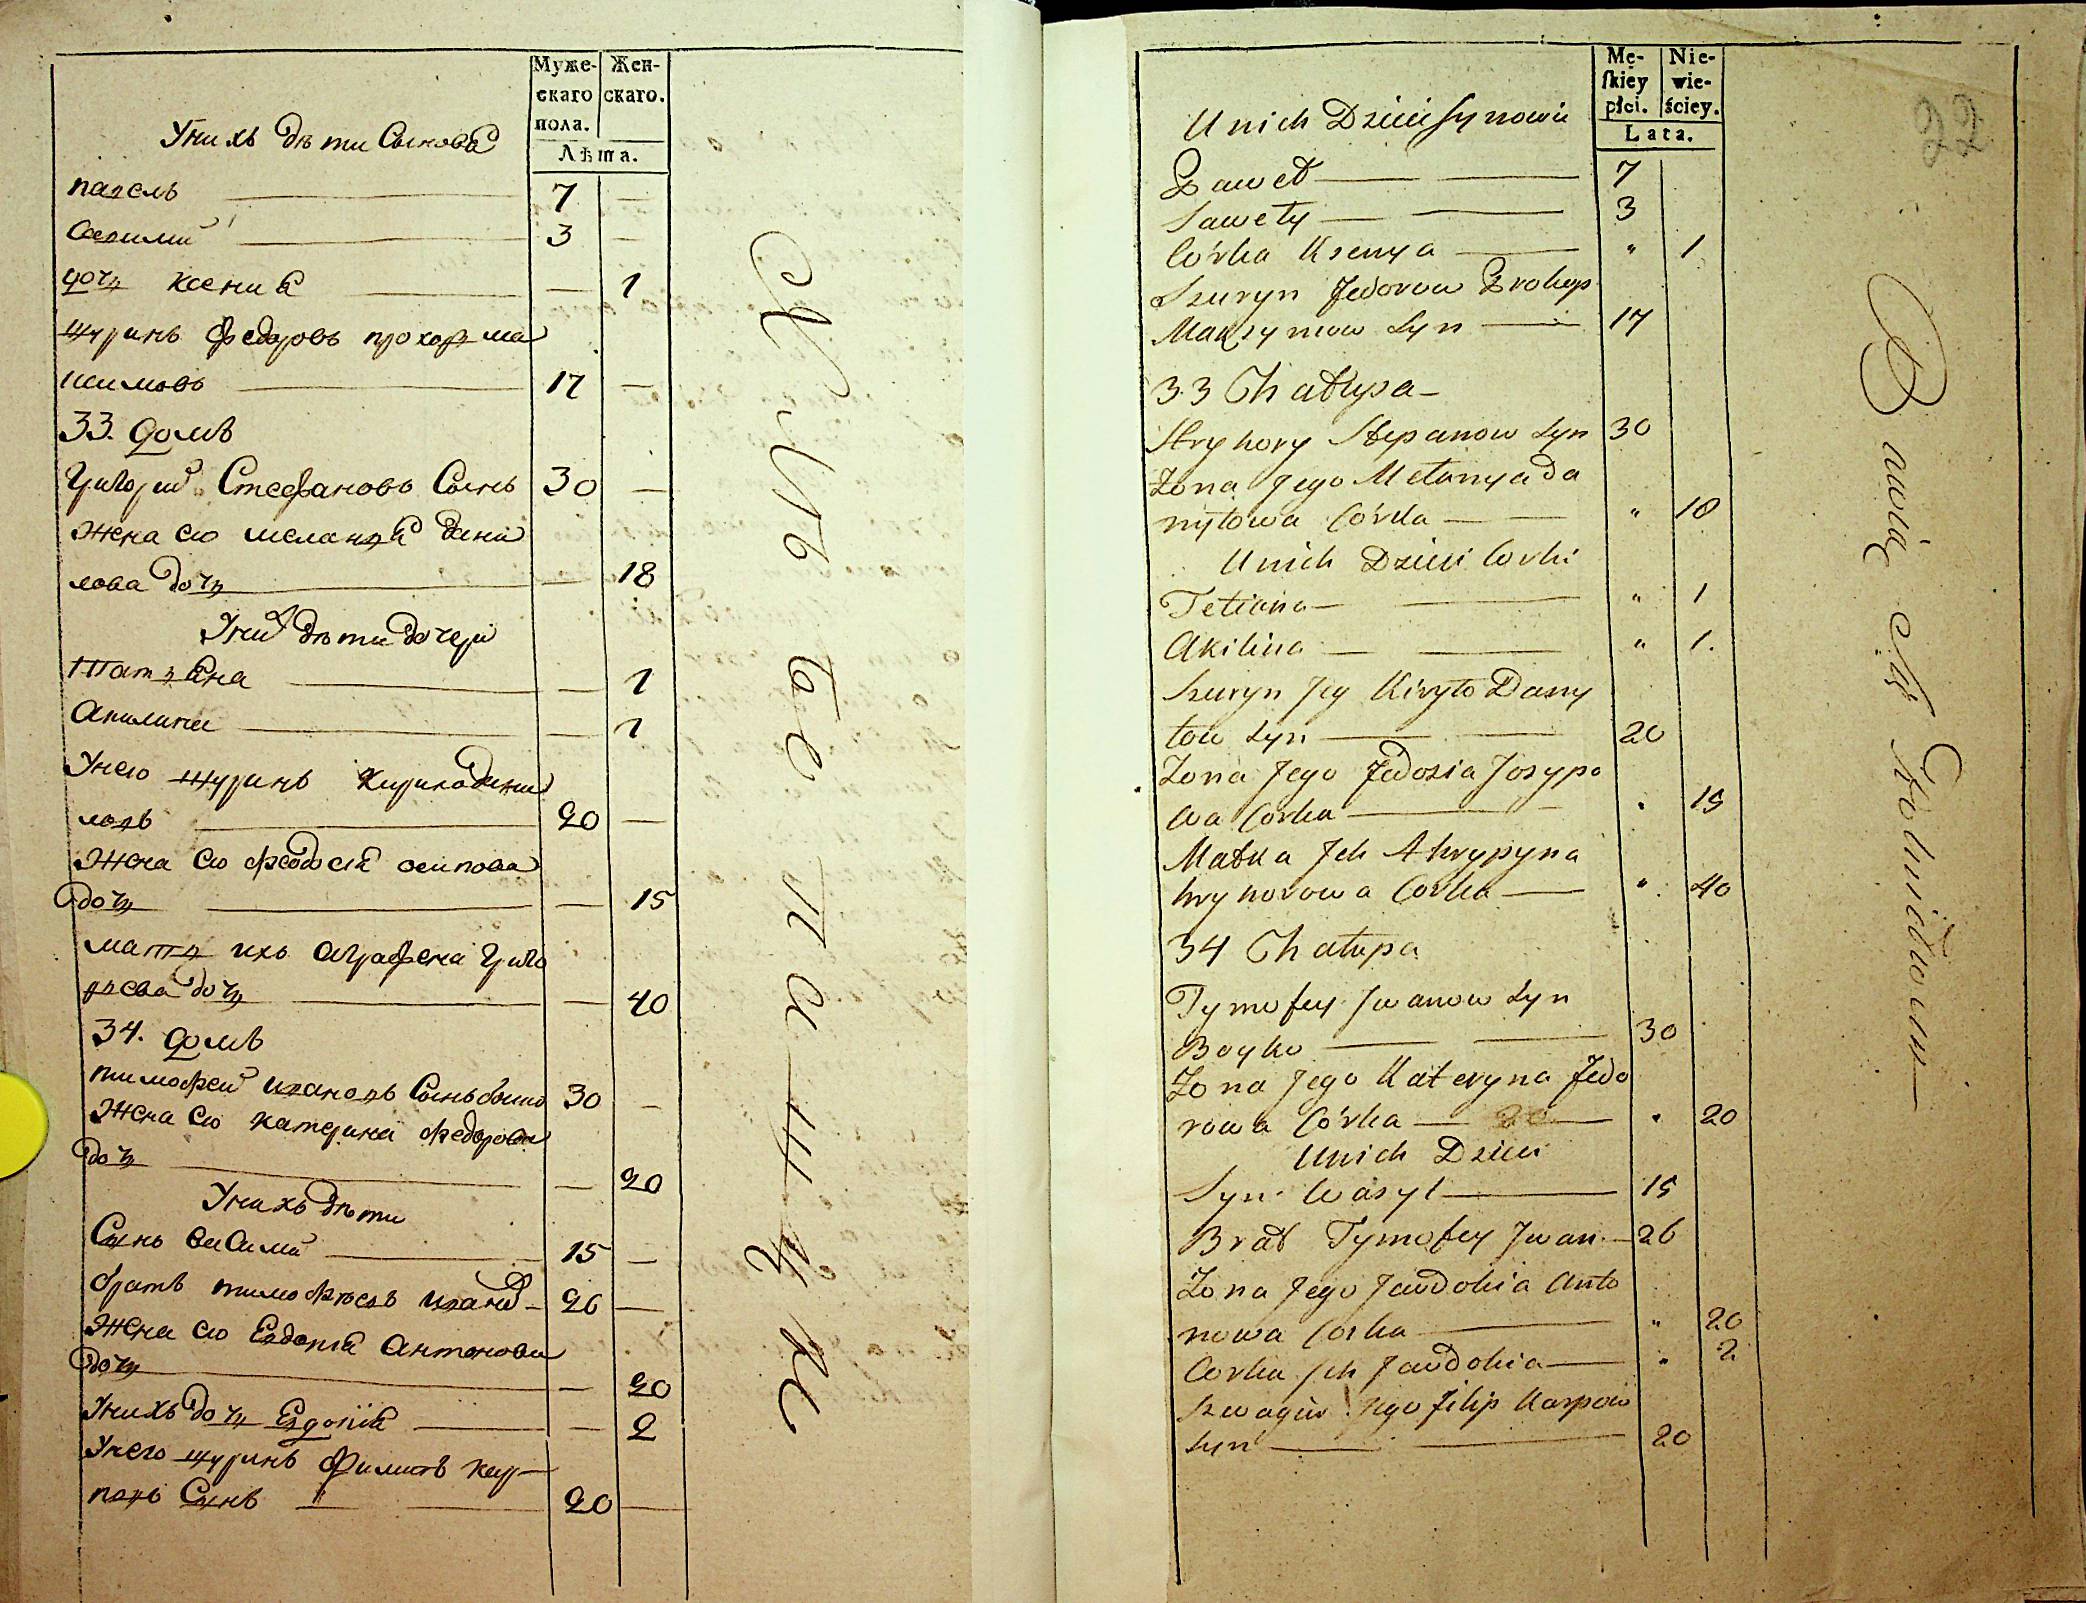 Муже-
скаго
пола.
Жен-
скаго.
Лѣта.
У нихъ дѣти Сыновя
павелъ 7 —
3 —
дочь ксения — 1
шуринъ Федоровъ прохоръ ма
ксимовъ 17 —
33. домъ
Григорий Стефановъ Сынъ 30 —
Жена его мелания дани
лова дочь — 18
У них дѣти дочери
татъяна — 1
Акилина — 1
У него шуринъ кирила дани
ловъ 20 —
Жена его феодосия осипова
дочь — 15
мать ихъ аграфена григо
рьева дочь — 40
34. домъ
тимофей ивановъ Сынъ бойко 30 —
Жена его катерина федорова
дочь — 20
У нихъ дѣти
Сынъ василий 15 —
братъ тимофѣевъ иван 26 —
Жена его Евдокия Антонова
дочь — 20
У нихъ дочь Евдокия — 2
У него шуринъ филипъ кар
повъ Сынъ 20 —
Mę-
skiey
płci.
Nie-
wie-
ściey.
Lata.
22
U nich Dzieci Synowie
Paweł 7
Sawety 3
Córka Ksenya " 1
Szuryn Fedorow Prokop
Maksymow Syn 17
33 Chałupa
Hryhory Stepanow Syn 30
Żona Jego Melanya Da
nyłowa Córka " 18
U nich Dzieci Corki
Tetiana " 1
Akilina " 1.
Szuryn Jeg Kiryło Dany
łow Syn 20
Żona Jego Fedosia Josypo
wa Corka " 15
Matka Jch Ahrypyna
hryhorowa Corka " 40
34 Chałupa
Tymofey Jwanow Syn
Boyko 30
Żona Jego Kateryna Fedo
rowa Córka " 20
U nich Dzieci
Syn Wasyl 15
Brat Tymofey Jwan 26
Żona Jego Jawdokia Anto
nowa Corka " 20
Corka Jch Jawdokia " 2
Szwagier Jego Filip Karpow
Syn 20